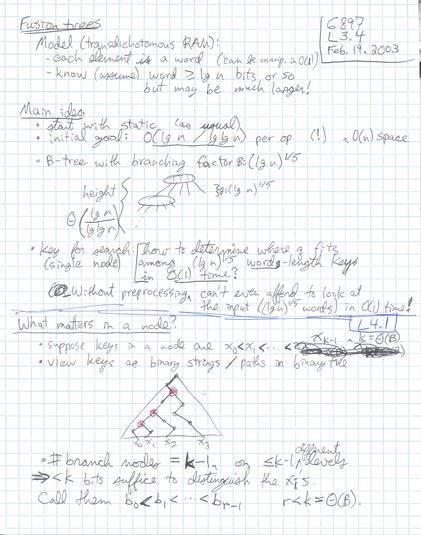 Fusion trees
6.897
L3.4
Feb. 19, 2003
Model (transdichotomous RAM):
- each element is a word (can be manip. in O(1))
- know (assume) word ≥ lg n bits or so
but may be much larger!
Main idea
• start with static (as usual)
• initial goal: O(lg n / lg lg n) per op. (!) O(n) space
• B-tree with branching factor B=(lg n)^1/5
height
B=(lg n)^1/5
Θ(lg n / lg lg n)
• key for search: how to determine where q fits
(single node) among (lg n)^1/5 word-length keys
in O(1) time?
Without preprocessing, can't even afford to look at
the input ((lg n)^1/5 words) in O(1) time!
L4.1
What matters in a node?
• suppose keys in a node are x0<x1<...<xk-1, k=Θ(B)
• view keys as binary strings / paths in binary tree
x0 x1 x2 x3
• # branch nodes = k-1, on ≤k-1 different levels
⇒ <k bits suffice to distinguish the xi's.
Call them b0<b1<...<br-1 r<k=Θ(B).